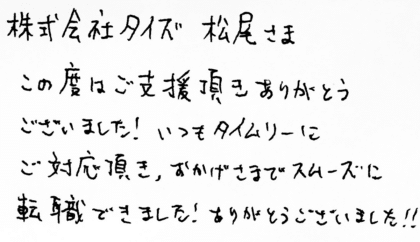 株式会社タイズ 松尾さま
この度はご支援頂きありがとう
ございました! いつもタイムリーに
ご対応頂き, おかげさまでスムーズに
転職できました! ありがとうございました!!